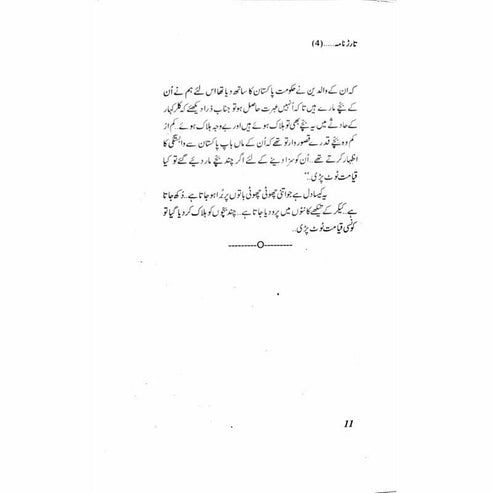 تارڑ نامہ.....(4)
کہ ان کے والدین نے حکومت پاکستان کا ساتھ دیا تھا اس لئے ہم نے اُن
کے بچے مارے ہیں تا کہ اُنہیں عبرت حاصل ہو تو جناب ذرا دیکھئے کہ کلر کہار
کے حادثے میں یہ بچے بھی تو ہلاک ہوئے ہیں اور بے وجہ ہلاک ہوئے.. کم از
کم وہ بچے قدرے قصور وار تو تھے کہ اُن کے ماں باپ پاکستان سے وابستگی کا
اظہار کرتے تھے.. اُن کو سزا دینے کے لئے اگر چند بچے مار دیئے گئے تو کیا
قیامت ٹوٹ پڑی..“
یہ کیسا دل ہے جو اتنی چھوٹی چھوٹی باتوں پر بُرا ہو جاتا ہے.. دُکھ جاتا
ہے.. کیکر کے تیکھے کانٹوں میں پرو دیا جاتا ہے.. چند بچوں کو ہلاک کر دیا گیا تو
کونسی قیامت ٹوٹ پڑی..
---------O---------
11